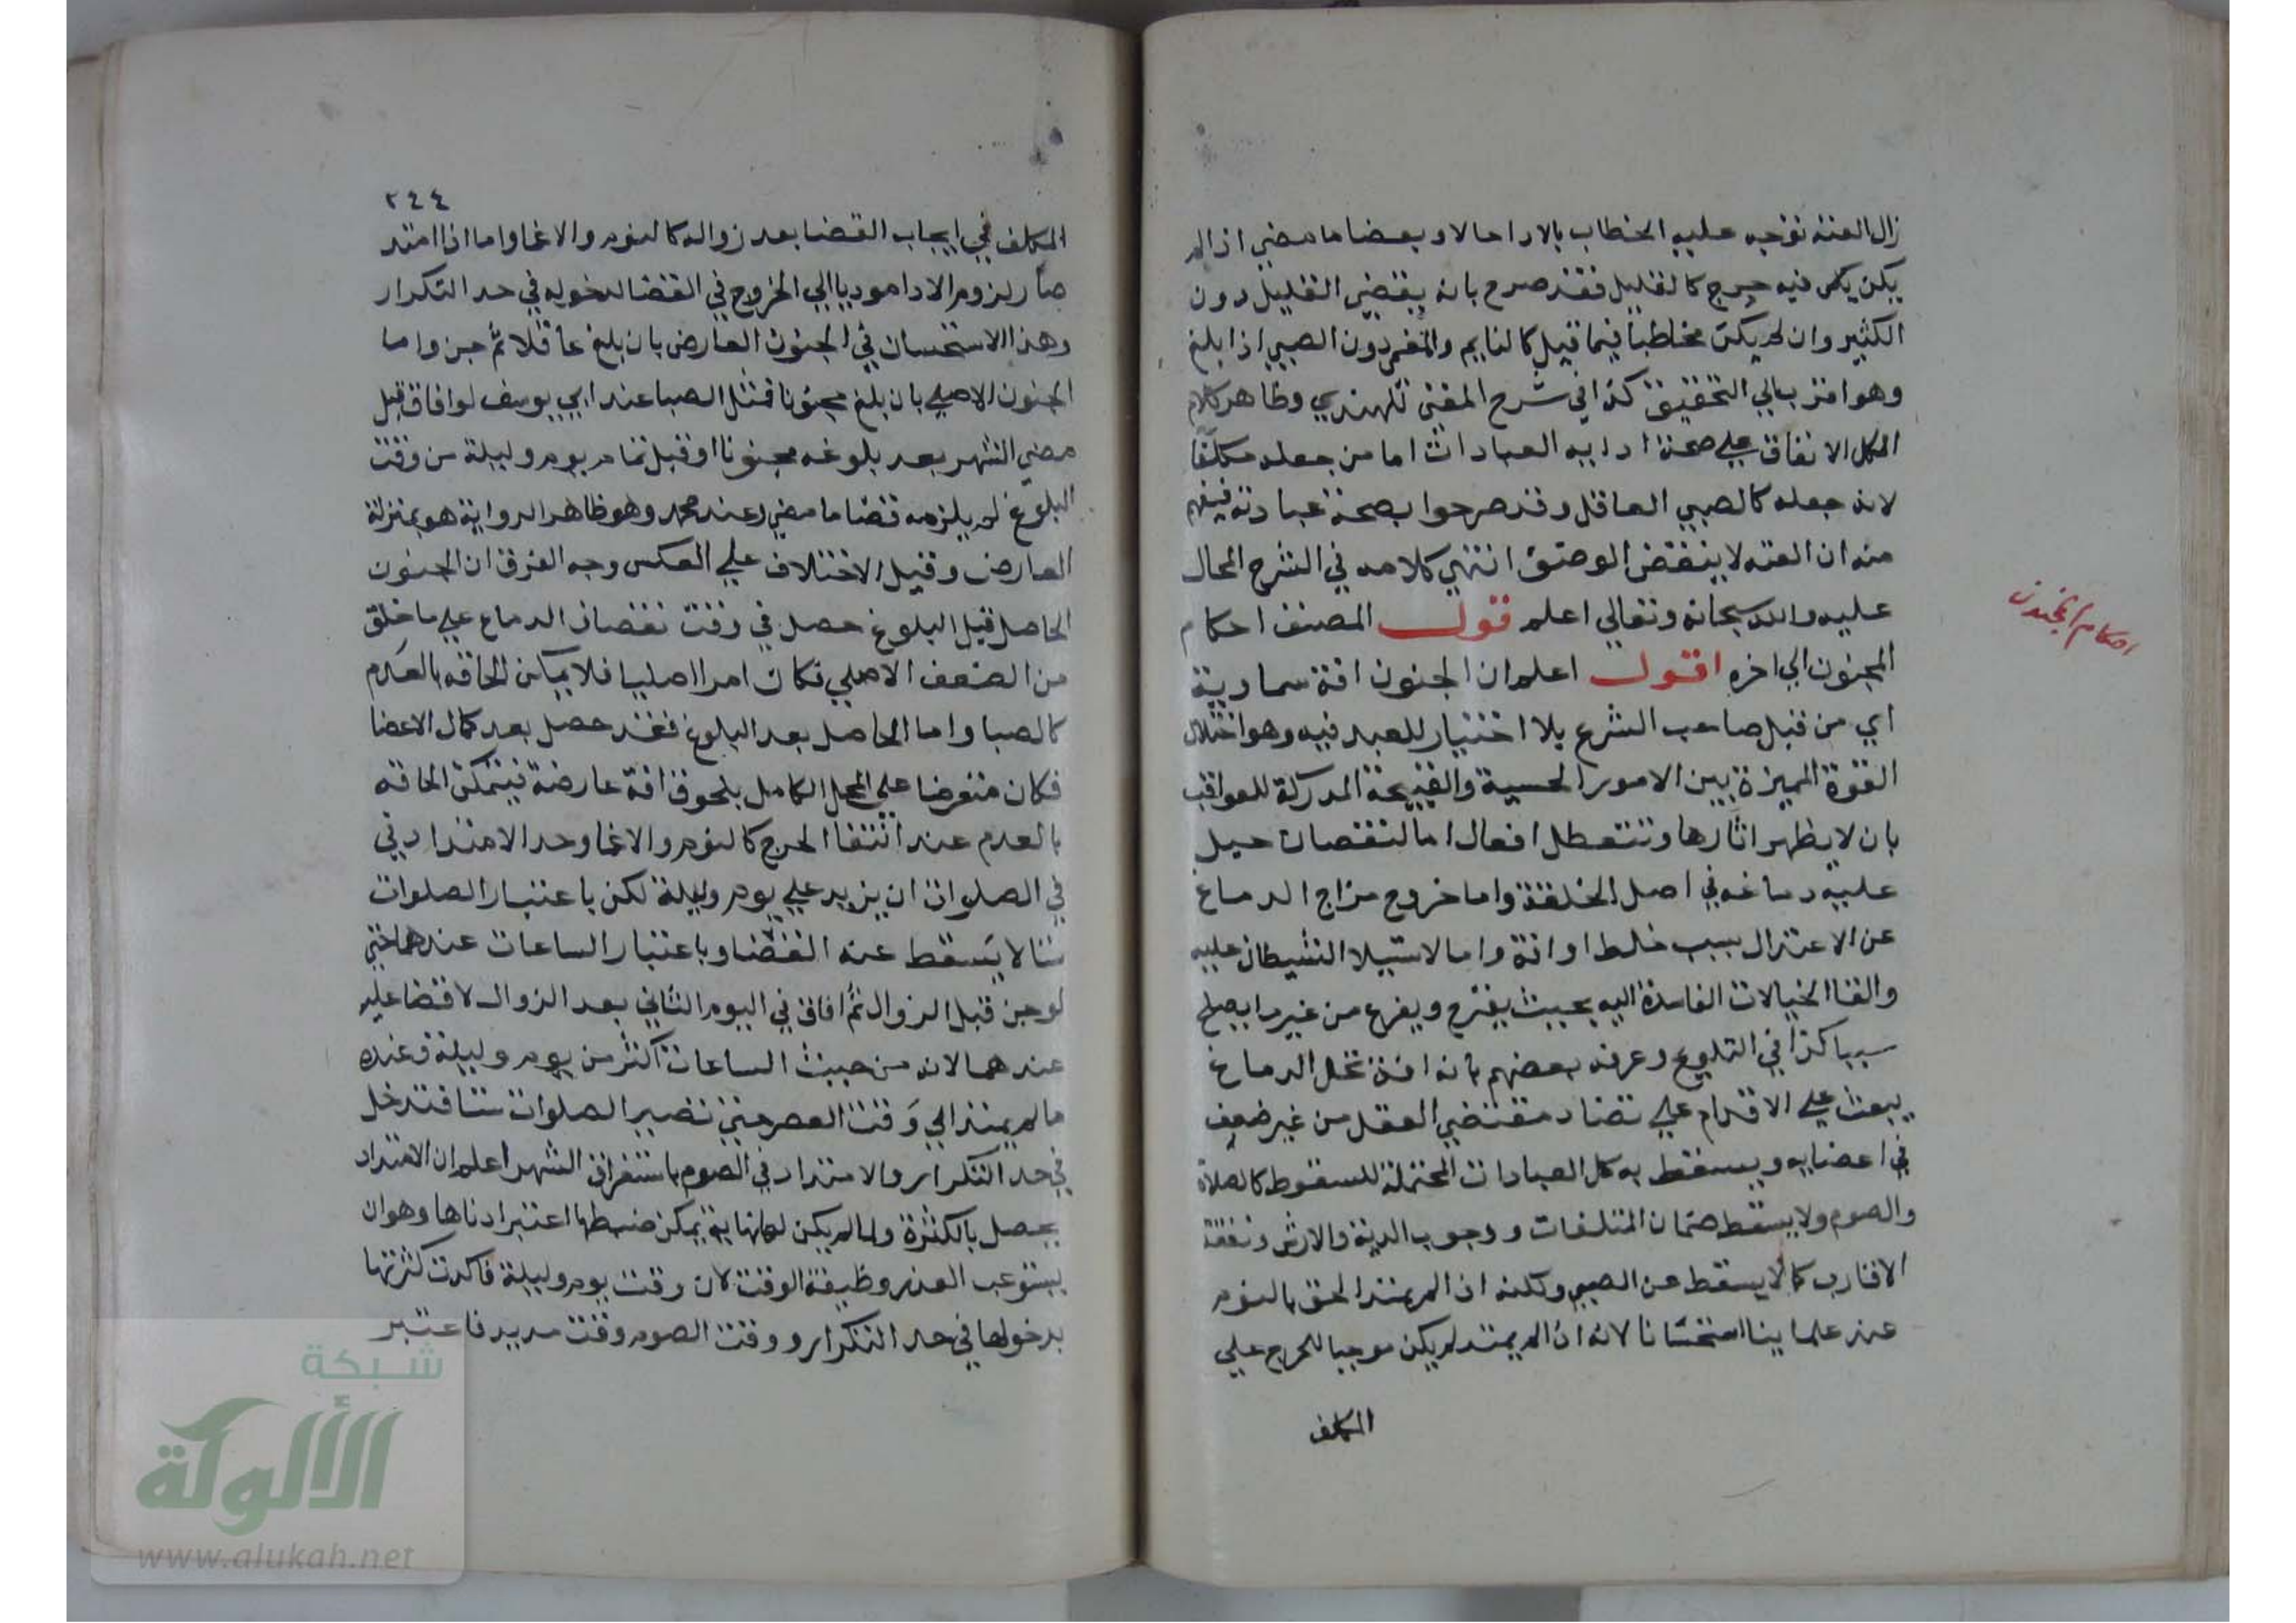 زال العته توجه عليه الخطاب بالادا حالا وبعضا ما مضي اذا لم
يكن يكن فيه حرج كالقليل فقد صرح بانه يقضي القليل دون
الكثير وان لم يكن مخاطبا فيما قبل كالنايم والمغمي دون الصبي اذا بلغ
وهو اقرب الي التحقيق كذا في شرح المغني للهندي وظاهر كلام
الكل الاتفاق علي صحة ادايه العبادات اما من جعله مكلفا
لانه جعله كالصبي العاقل وقد صرحوا بصحة عبادته فيفهم
منه ان العته لا ينقض الوضوء انتهي كلامه في الشرح المحال
عليه والله سبحانه وتعالي اعلم قول المصنف احكام
المجنون الي اخره اقول اعلم ان الجنون افة سماوية
اي من قبل صاحب الشرع بلا اختيار للعبد فيه وهو اختلال
القوة المميزة بين الامور الحسية والقبيحة المدركة للعواقب
بان لا يظهر اثارها وتتعطل افعال اما لنقصان حيل
عليه دماغه في اصل الخلقة واما خروج مزاج الدماغ
عن الاعتدال بسبب خلط او افة واما لاستيلا الشيطان عليه
والقا الخيالات الفاسدة اليه بحيث يفرح ويفزع من غير ما يصلح
سببا كذا في التلويح وعرفه بعضهم بانه افة تحل الدماغ
يبعث علي الاقدام علي تضاد مقتضي العقل من غير ضعف
في اعضايه ويسقط به كل العبادات المحتملة للسقوط كالصلاة
والصوم ولا يسقط ضمان المتلفات ووجوب الدية والارش ونفقة
الاقارب كما لا يسقط عن الصبي ولكنه اذا لم يمتد الحق بالنوم
عند علماينا استحسانا لانه ان لم يمتد لم يكن موجبا للحرج علي
المكلف
احكام المجنون
٢٤٤
المكلف في ايجاب القضا بعد زواله كالنوم والاغما واما اذا امتد
صار لزوم الادا موديا الي الخروج في القضا لدخوله في حد التكرار
وهذا الاستحسان في الجنون العارض بان بلغ عاقلا ثم جن واما
الجنون الاصلي بان بلغ مجنونا فمثل الصبا عند ابي يوسف لو افاق قبل
مضي الشهر بعد بلوغه مجنونا او قبل تمام يوم وليلة من وقت
البلوغ لم يلزمه قضا ما مضي وعند محمد وهو ظاهر الرواية هو بمنزلة
العارض وقيل الاختلاف علي العكس وجه الفرق ان الجنون
الحاصل قبل البلوغ حصل في وقت نقصان الدماغ علي ما خلق
من الضعف الاصلي فكان امرا اصليا فلا يمكن الحاقه بالعدم
كالصبا واما الحاصل بعد البلوغ فقد حصل بعد كمال الاعضا
فكان متعرضا علي المحل الكامل بلحوق افة عارضة فيتمكن الحاقه
بالعدم عند انتفا الحرج كالنوم والاغما وحد الامتداد في
في الصلوات ان يزيد علي يوم وليلة لكن باعتبار الصلوات
ستا لا يسقط عنه القضا وباعتبار الساعات عندهما حتي
لو جن قبل الزوال ثم افاق في اليوم الثاني بعد الزوال لا قضا عليه
عندهما لانه من حيث الساعات اكثر من يوم وليلة وعنده
ما لم يمتد الي وقت العصر حتي تصير الصلوات ستا فتدخل
في حد التكرار والامتداد في الصوم باستغراق الشهر اعلم ان الامتداد
يحصل بالكثرة ولما لم يكن لها نهاية يمكن ضبطها اعتبر ادناها وهو ان
يستوعب العذر وظيفة الوقت لان وقت يوم وليلة فاكدت كثرتها
بدخولها في حد التكرار ووقت الصوم وقت مديد فاعتبر
شبكة
الألوكة
www.alukah.net